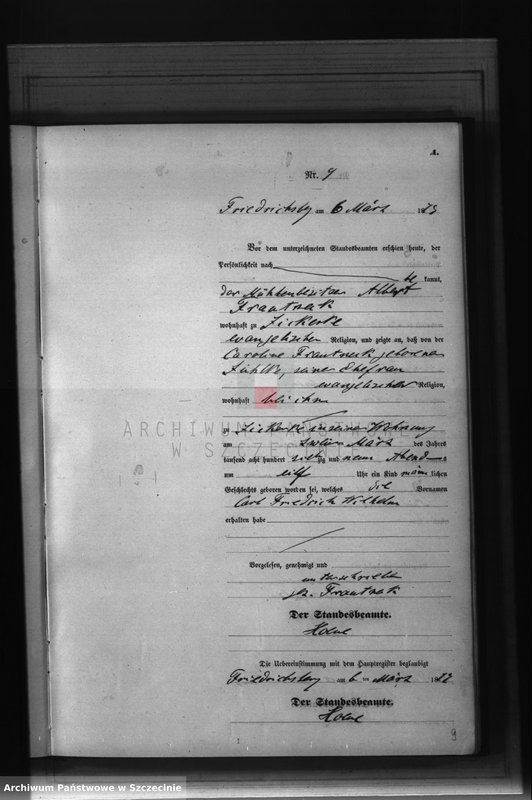 A.
Nr. 9
Friedrichsberg am 6 März 1879
Vor dem unterzeichneten Standesbeamten erschien heute, der
Persönlichkeit nach
be kannt,
der Mühlenbesitzer Albert
Frantzek
wohnhaft zu Zickerke
evangelischer Religion, und zeigte an, daß von der
Caroline Frantzek geborenen
seiner Ehefrau
evangelischer Religion,
wohnhaft bei ihm
ARCHIWUM PAŃSTWOWE
W SZCZECINIE
zu Zickerke in seiner Wohnung
am zweiten März des Jahres
tausend acht hundert siebzig und neun Abends
um elf Uhr ein Kind männlichen
Geschlechts geboren worden sei, welches die Vornamen
Carl Friedrich Wilhelm
erhalten habe
Vorgelesen, genehmigt und
unterschrieben
gez. Frantzek
Der Standesbeamte.
Die Uebereinstimmung mit dem Hauptregister beglaubigt
Friedrichsberg am 6 ten März 1879
Der Standesbeamte.
9
Archiwum Państwowe w Szczecinie